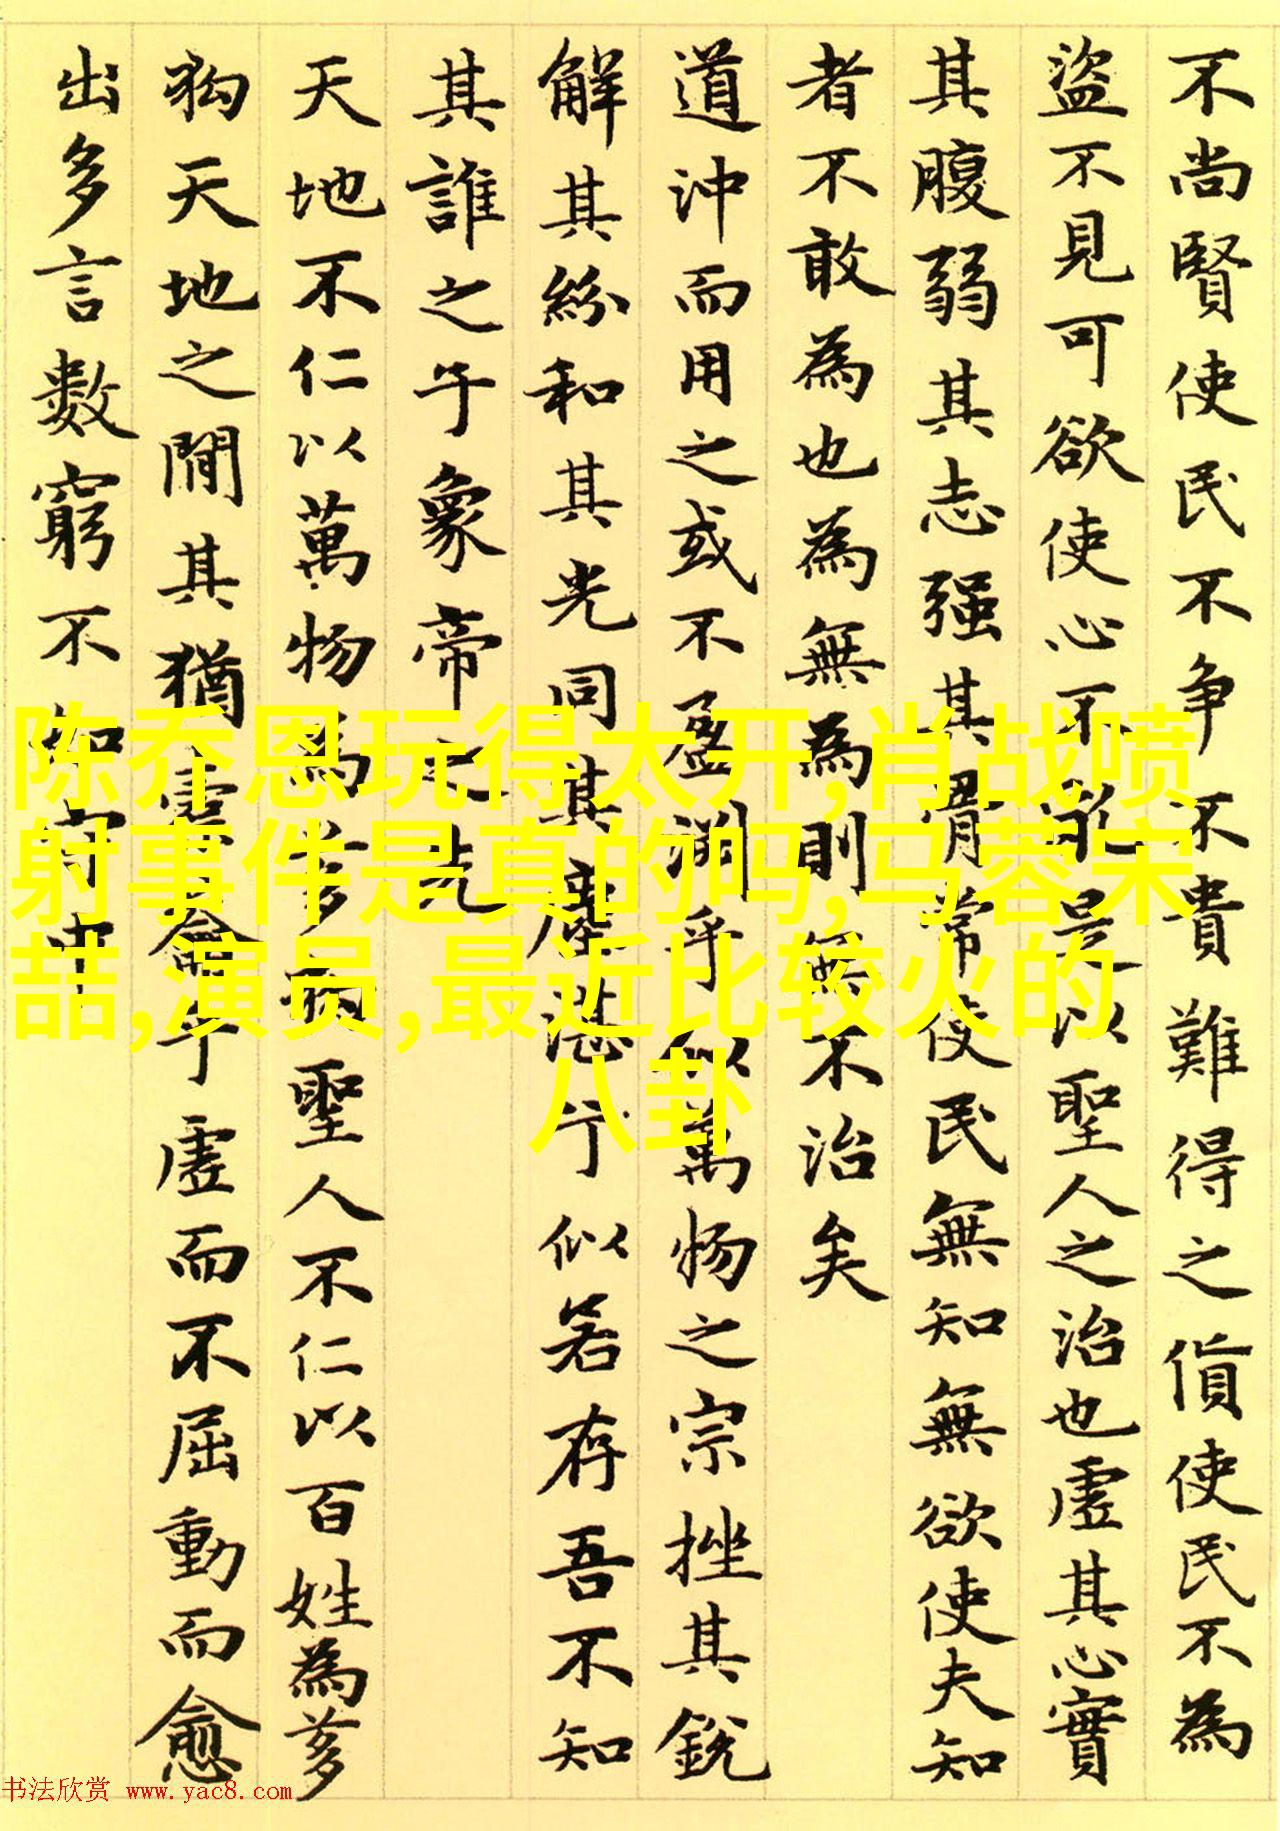 不尚賢使民不争不貴難得之貨使民不為
盜不見可欲使心不亂是以聖人之治也虛其心實
其腹弱其志强其骨常使民無知無欲使夫知
者不敢為也為無為則無不治矣
道沖而用之或不盈渊乎似萬物之宗挫其銳
解其紛和其光同其塵湛兮似若存吾不知
其誰之子象帝之先
天地不仁以萬物為芻狗聖人不仁以百姓為芻
狗天地之間其猶橐龠乎虛而不屈動而愈
出多言數窮不如守中
陈乔恩玩得太开,肖战喷
射事件是真的吗,马蓉宋
喆,演员,最近比较火的
八卦
书法欣赏 www.yac8.com